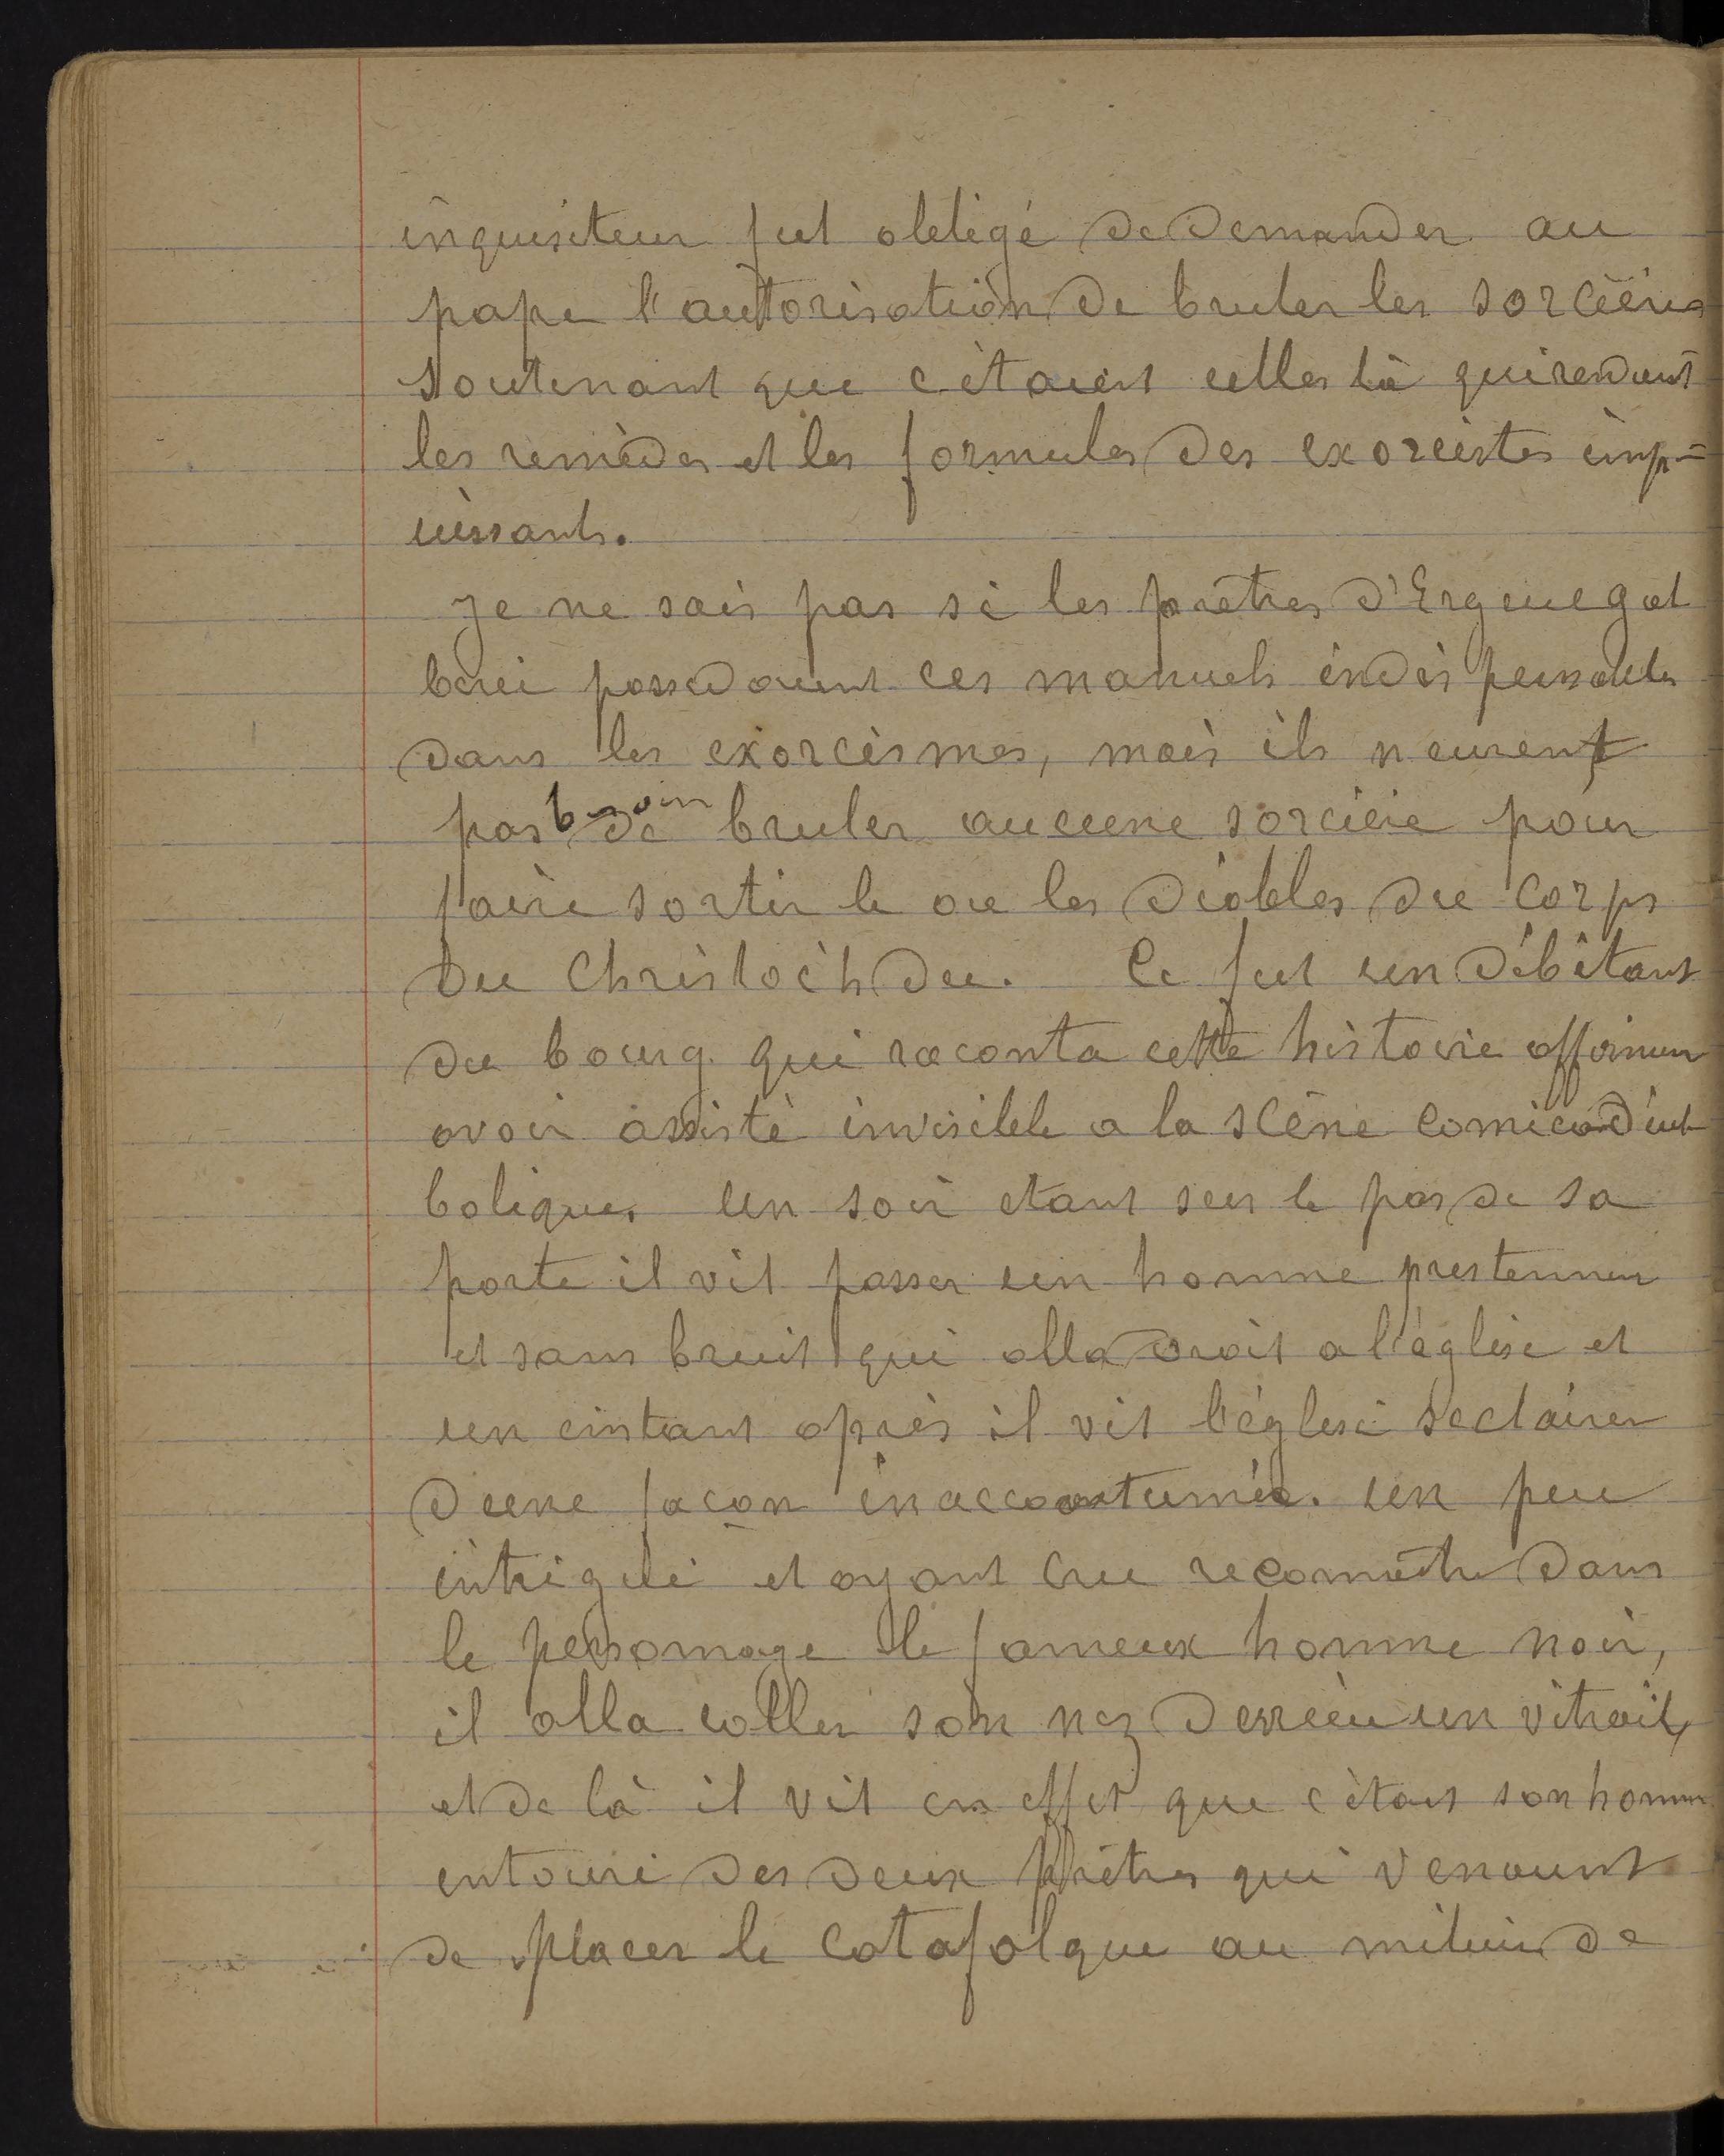 inquisiteur fut obligé de demander au
pape l'autorisation de bruler les sorcières
soutenant que c'étaient celles là qui rendent
les remèdes et les formules des exorcistes imp=
uissants.
Je ne sais pas si les prêtres d'Erguegat
berei possedaient ces manuels indispensables
dans les exorcismes, mais ils neurent
pas besoin de bruler aucune sorcière pour
faire sortir le ou les diables du corps
du Christoc'h du. Ce fut un débitant
du bourg qui raconta cette histoire affirmen
avoir assisté invisible a la scène comico diab
bolique. Un soir etant sur le pas de sa
porte il vit passer un homme prestemen
et sans bruit qui alla droit a l'église et
un instant après il vit l'église seclairer
dune façon inaccoutumée. un peu
intrigué et ayant cru reconnaître dans
le personnage le fameux homme noir,
il alla coller son nez derrière un vitrail,
et de là il vit en effet que c'était son homme
entouré des deux prêtres qui venaient
de placer le catafalque au milieu de